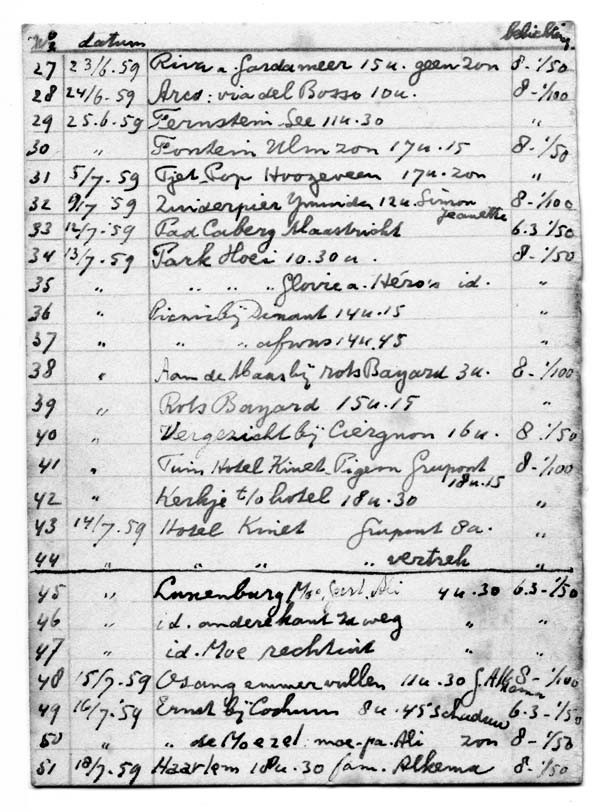 No datum belichting
27 23/6.59 Riva a. Gardameer 15u. geen zon 8-1/50
28 24/6.59 Arco: via del Bosso 10u. 8-1/100
29 25.6.59 Fernstein See 11u.30 "
30 " Fontein Ulm zon 17u.15 8-1/50
31 5/7.59 Tjet-Pop Hoogeveen 17u. zon "
32 9/7 59 Zuiderpier Ymuiden 12u. Simon Jeanette 8-1/100
33 12/7.59 Pad Caberg Maastricht 6.3 1/50
34 13/7.59 Park Hoei 10.30u. 8-1/50
35 " " " " Glorie a. Héros id. "
36 " Picnic bij Dinant 14u.15 "
37 " " " afwas 14u.45 "
38 " Aan de Maas bij rots Bayard 3u. 8-1/100
39 " Rots Bayard 15u.15 "
40 " Vergezicht bij Ciergnon 16u. 8-1/50
41 " Tuin Hotel Kinet-Pigeon Grupont 18u.15 8-1/100
42 " Kerkje t/o hotel 18u.30 "
43 14/7.59 Hotel Kinet Grupont 8u. "
44 " " " " vertrek "
45 " Luxenburg Moe, Ali 4u.30 6.3-1/50
46 " id. andere kant v weg " "
47 " id. Moe rechtuit " "
48 15/7.59 emmer vullen 11u.30 J. Alkema 8-1/100
49 16/7.59 Ernst bij Cochum 8u.45 schaduw 6.3-1/50
50 " " de Moezel moe-pa-Ali zon 8-1/50
51 18/7.59 Haarlem 18u.30 fam. Alkema 8-1/50